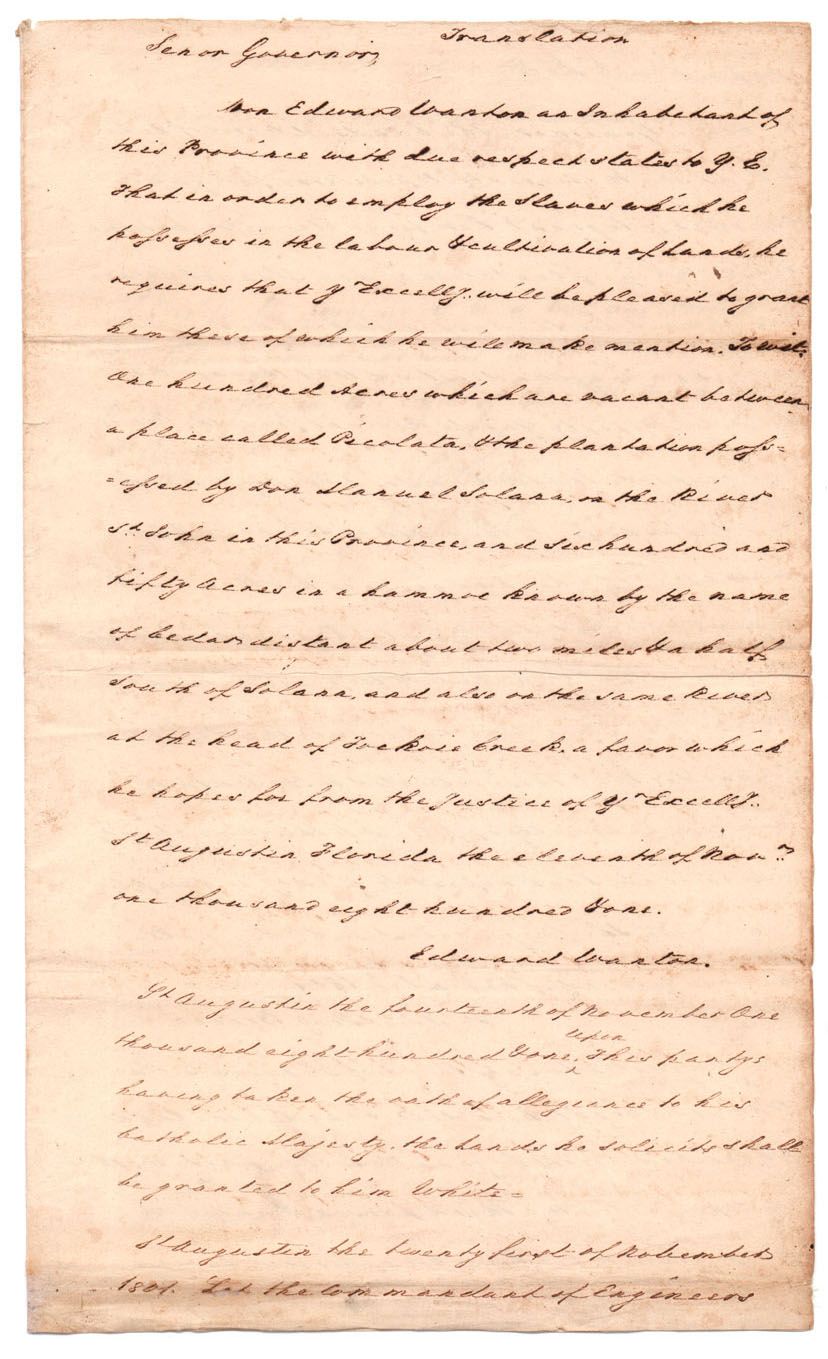 Translation
Senor Governor,
Don Edward Wanton an Inhabetant of
this Province with due respect states to Y. E.
That in order to employ the Slaves which he
possesses in the labour & cultivation of Lands, he
requires that Y Excelly. will be pleased to grant
him these of which he will make mention. To wit.
One hundred Acres which are vacant between
a place called Picolata, & the plantation poss=
=essed by Don Manuel Solana, on the River
St. John in this Province, and six hundred and
fifty Acres in a hammoc known by the name
of Cedar distant about two miles & a half
South of Solana, and also on the same River
at the head of Tockoie Creek, a favor which
he hopes for from the Justice of Yr Excelly..
St Augustin Florida the eleventh of Novr..
one thousand eight hundred & one.
Edward Wanton.
St Augustin the fourteenth of November One
thousand eight hundred & one, upon This partys
having taken the oath of allegiance to his
Catholic Majesty, the Lands he solicits shall
be granted to him White =
St Augustin the twenty first of November
1801. Let the Commandant of Engineers